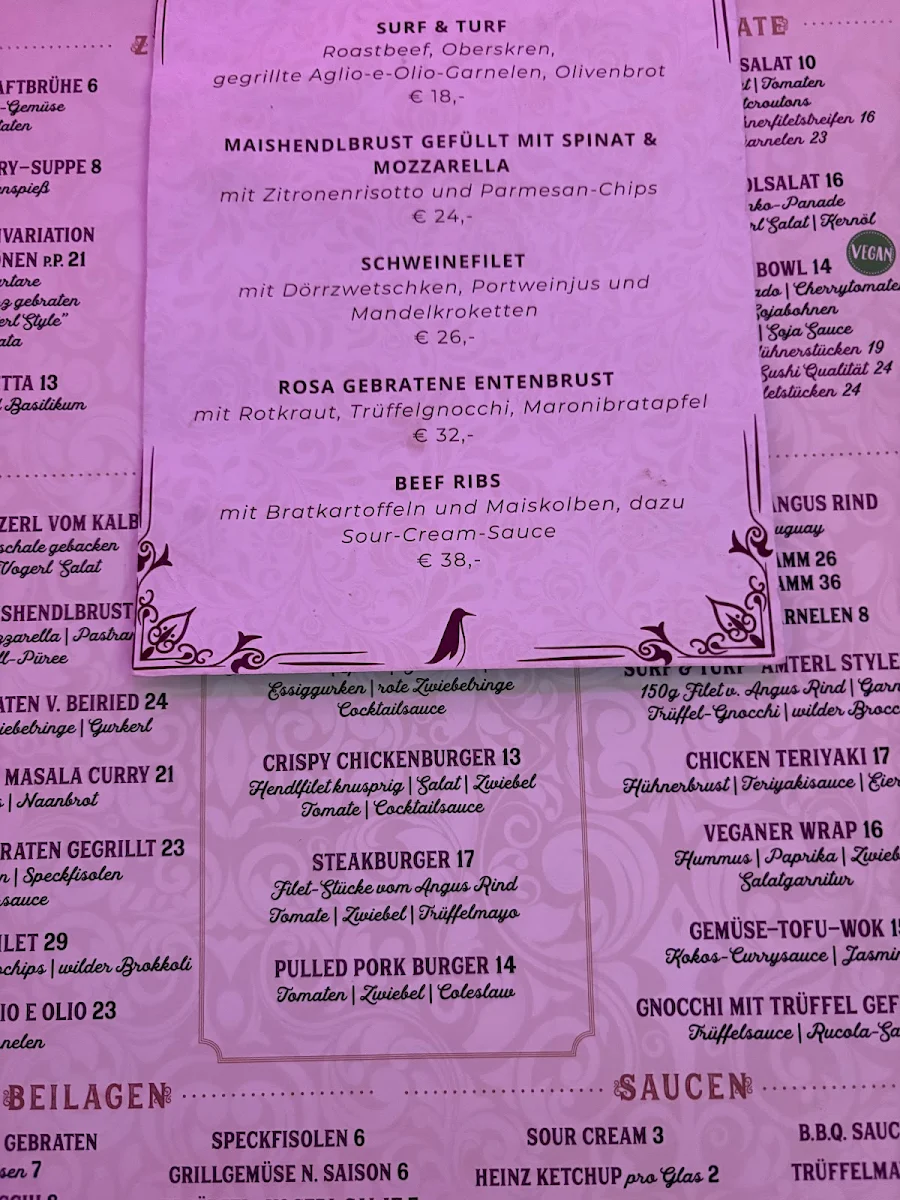 SURF & TURF
Roastbeef, Oberskren,
gegrillte Aglio-e-Olio-Garnelen, Olivenbrot
€ 18,-
MAISHENDLBRUST GEFÜLLT MIT SPINAT &
MOZZARELLA
mit Zitronenrisotto und Parmesan-Chips
€ 24,-
SCHWEINEFILET
mit Dörrzwetschken, Portweinjus und
Mandelkroketten
€ 26,-
ROSA GEBRATENE ENTENBRUST
mit Rotkraut, Trüffelgnocchi, Maronibratapfel
€ 32,-
BEEF RIBS
mit Bratkartoffeln und Maiskolben, dazu
Sour-Cream-Sauce
€ 38,-
AFTBRÜHE 6
-Gemüse
RY-SUPPE 8
nspieß
VARIATION
ONEN P.P. 21
artare
gebraten
erl Style"
ata
TTA 13
Basilikum
ZERL VOM KALB
schale gebacken
Vogerl Salat
SHENDLBRUST
zzarella | Pastra
ll-Püree
ATEN V. BEIRIED 24
iebelringe | Gurkerl
MASALA CURRY 21
| Naanbrot
RATEN GEGRILLT 23
n | Speckfisolen
sauce
ILET 29
ochips | wilder Brokkoli
IO E OLIO 23
nelen
Essiggurken | rote Zwiebelringe
Cocktailsauce
CRISPY CHICKENBURGER 13
Hendlfilet knusprig | Salat | Zwiebel
Tomate | Cocktailsauce
STEAKBURGER 17
Filet-Stücke vom Angus Rind
Tomate | Zwiebel | Trüffelmayo
PULLED PORK BURGER 14
Tomaten | Zwiebel | Coleslaw
ATE
SALAT 10
| Tomaten
croutons
nerfiletstreifen 16
arnelen 23
OLSALAT 16
nko-Panade
rl Salat | Kernöl
VEGAN
BOWL 14
ado | Cherrytomate
Sojabohnen
| Soja Sauce
ühnerstücken 19
Sushi Qualität 24
letstücken 24
ANGUS RIND
uguay
AMM 26
AMM 36
ARNELEN 8
SURF & TURF AMTERL STYLE
150g Filet v. Angus Rind | Garn
Trüffel-Gnocchi | wilder Brocc
CHICKEN TERIYAKI 17
Hühnerbrust | Teriyakisauce | Eier
VEGANER WRAP 16
Hummus | Paprika | Zwieb
Salatgarnitur
GEMÜSE-TOFU-WOK 1
Kokos-Currysauce | Jasmin
GNOCCHI MIT TRÜFFEL GEF
Trüffelsauce | Rucola-Sa
BEILAGEN
GEBRATEN
sen 7
SPECKFISOLEN 6
GRILLGEMÜSE N. SAISON 6
SAUCEN
SOUR CREAM 3
HEINZ KETCHUP pro Glas 2
B.B.Q. SAUC
TRÜFFELMA